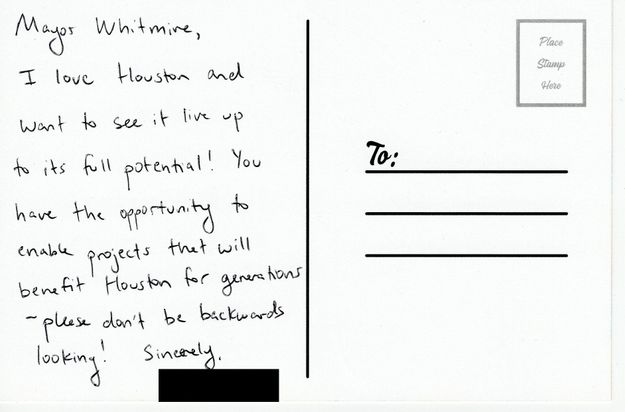 Mayor Whitmire,
I love Houston and
want to see it live up
to its full potential! You
have the opportunity to
enable projects that will
benefit Houston for generations
- please don't be backwards
looking! Sincerely,
Place
Stamp
Here
To: